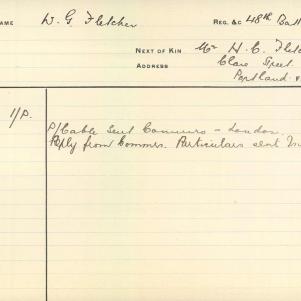 NAME W. G. Fletcher REG. &C 48th Batt
NEXT OF KIN Mr H. C. Fletc
ADDRESS Clare Street
Portland
1/P. P/Cable sent Commrs - London.
Reply from Commrs. Particulars sent